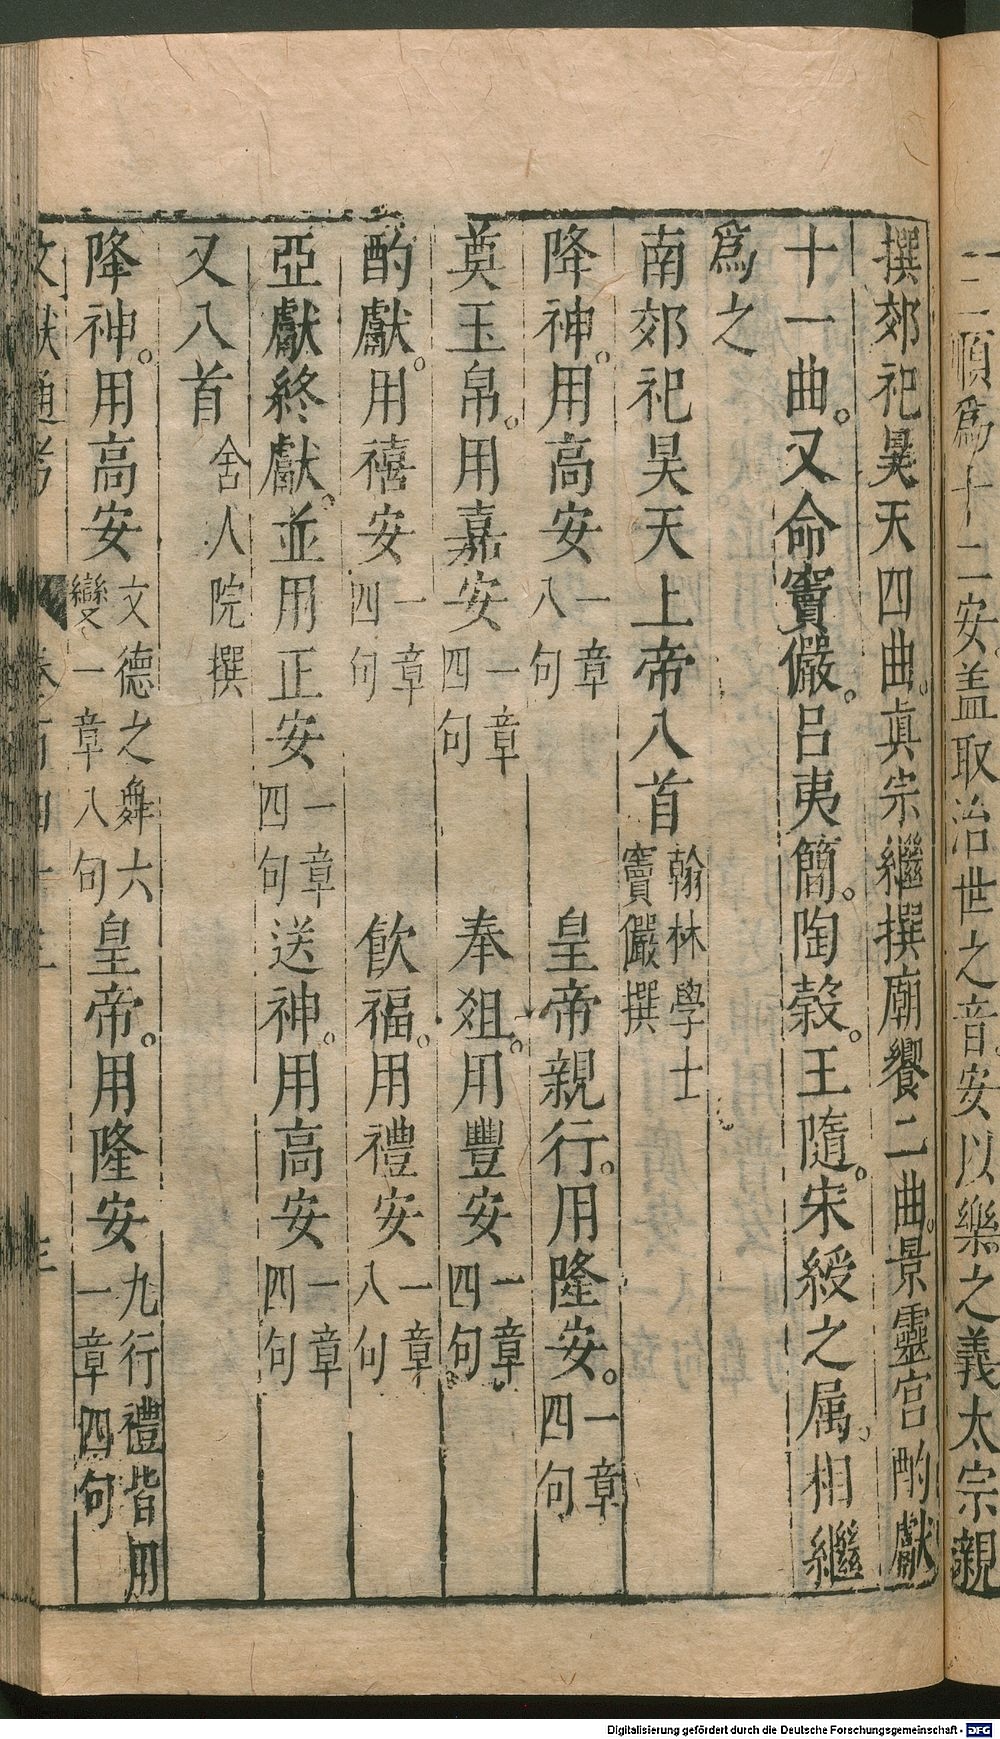 二順爲十二安。盖取治世之音。安以樂之義太宗親
撰郊祀昊天四曲。真宗繼撰廟饗二曲。景靈宮酌獻
十一曲。又命竇儼。呂夷簡。陶穀。王隨。宋綬之属。相繼
爲之
南郊祀昊天上帝八首 翰林學士竇儼撰
降神。用高安 一章八句 皇帝親行。用隆安。 一章四句
奠玉帛。用嘉安 一章四句 奉爼。用豐安 一章四句
酌獻。用禧安 一章四句 飲福。用禮安 一章八句
亞獻終獻。並用正安 一章四句 送神。用高安 一章四句
又八首 舍人院撰
降神。用高安 文德之舞六變一章八句 皇帝。用隆安 九行禮皆用一章四句
Digitalisierung gefördert durch die Deutsche Forschungsgemeinschaft - DFG